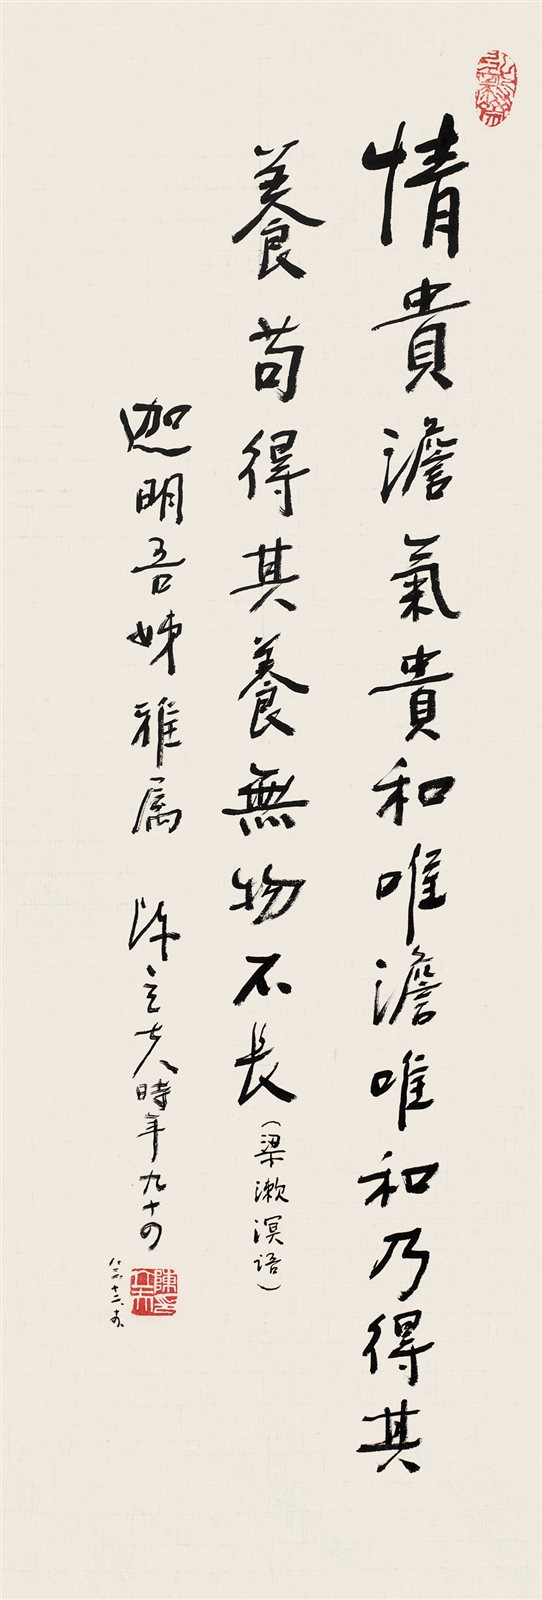 情貴澹氣貴和唯澹唯和乃得其
養苟得其養無物不長(梁漱溟語)
迦明吾姊雅屬 陳立夫時年九十四
八二、十二、